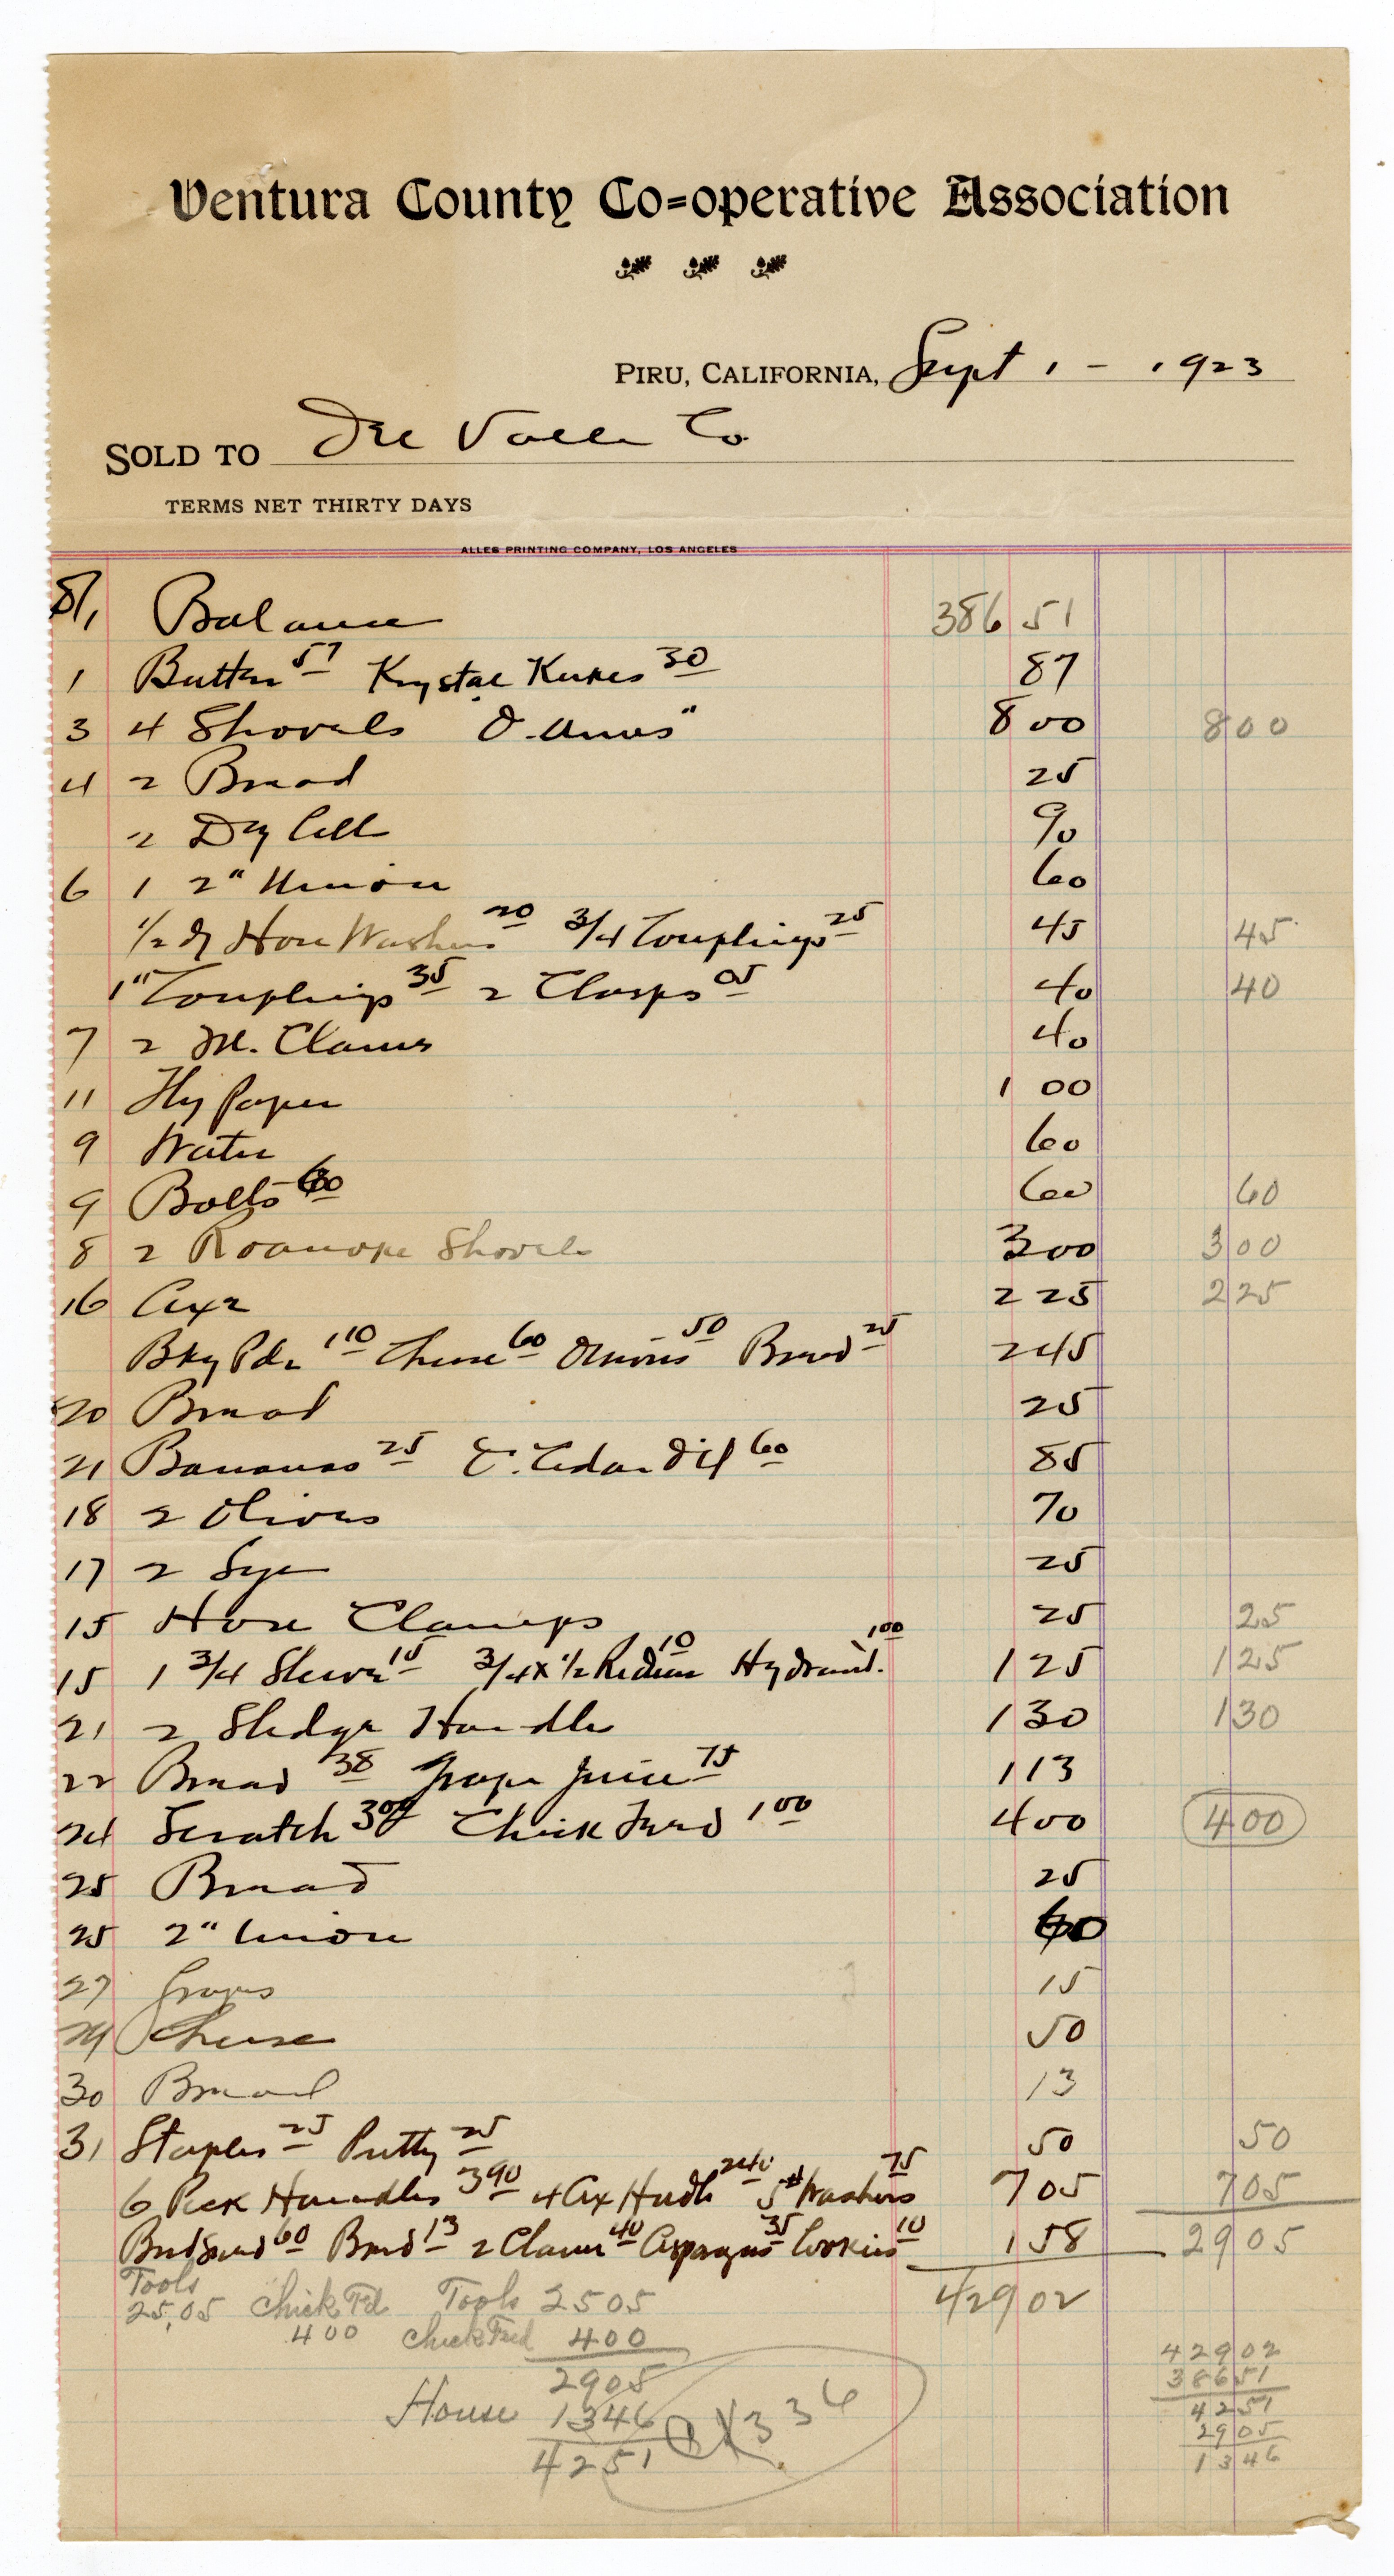 Ventura County Co-operative Association
PIRU, CALIFORNIA, Sept 1 - 1923
SOLD TO Del Valle Co.
TERMS NET THIRTY DAYS
ALLES PRINTING COMPANY, LOS ANGELES
8/1 Balance 386 51
1 Butter 57 Krystal 30 87
3 4 Shovels O. Ames" 8 00 8 00
4 2 Bread 25
2 Dry Cell 90
6 1 2" Union 60
1/2 dz Hose Washers 20 3/4 Couplings 25 45 45
1" Couplings 35 2 Clasps 05 40 40
7 2 M. Clams 40
11 Fly Paper 1 00
9 Water 60
9 Bolts 60 60 60
8 2 Roanoke Shovels 3 00 3 00
16 Axe 2 25 2 25
Bkg Pdr 1 10 Cheese 60 Onions 50 Bread 25 2 45
20 Bread 25
21 Bananas 25 O. Cedar Oil 60 85
18 2 Olives 70
17 2 Lye 25
15 Hose Clamps 25 25
15 1 3/4 Sleeve 15 3/4 x 1/2 Reducer 10 Hydrant. 1 00 1 25 1 25
21 2 Sledge Handle 1 30 1 30
22 Bread 38 Grape Juice 75 1 13
24 Scratch 3 00 Chick Feed 1 00 4 00 4 00
25 Bread 25
25 2" Union 60
27 Grapes 15
29 Cheese 50
30 Bread 13
31 Staples 25 Putty 25 50 50
6 Pick Handles 3 90 4 Ax Hndle 2 40 5# Washers 75 7 05 7 05
Birdseed 60 Bread 13 2 Clams 40 Asparagus 35 Cookies 10 1 58 29 05
Tools
25.05 Chick Fd Tools 25 05 429 02
4 00 Chick Feed 4 00
29 05
House 13 46
42 51
X336
429 02
386 51
42 51
29 05
13 46